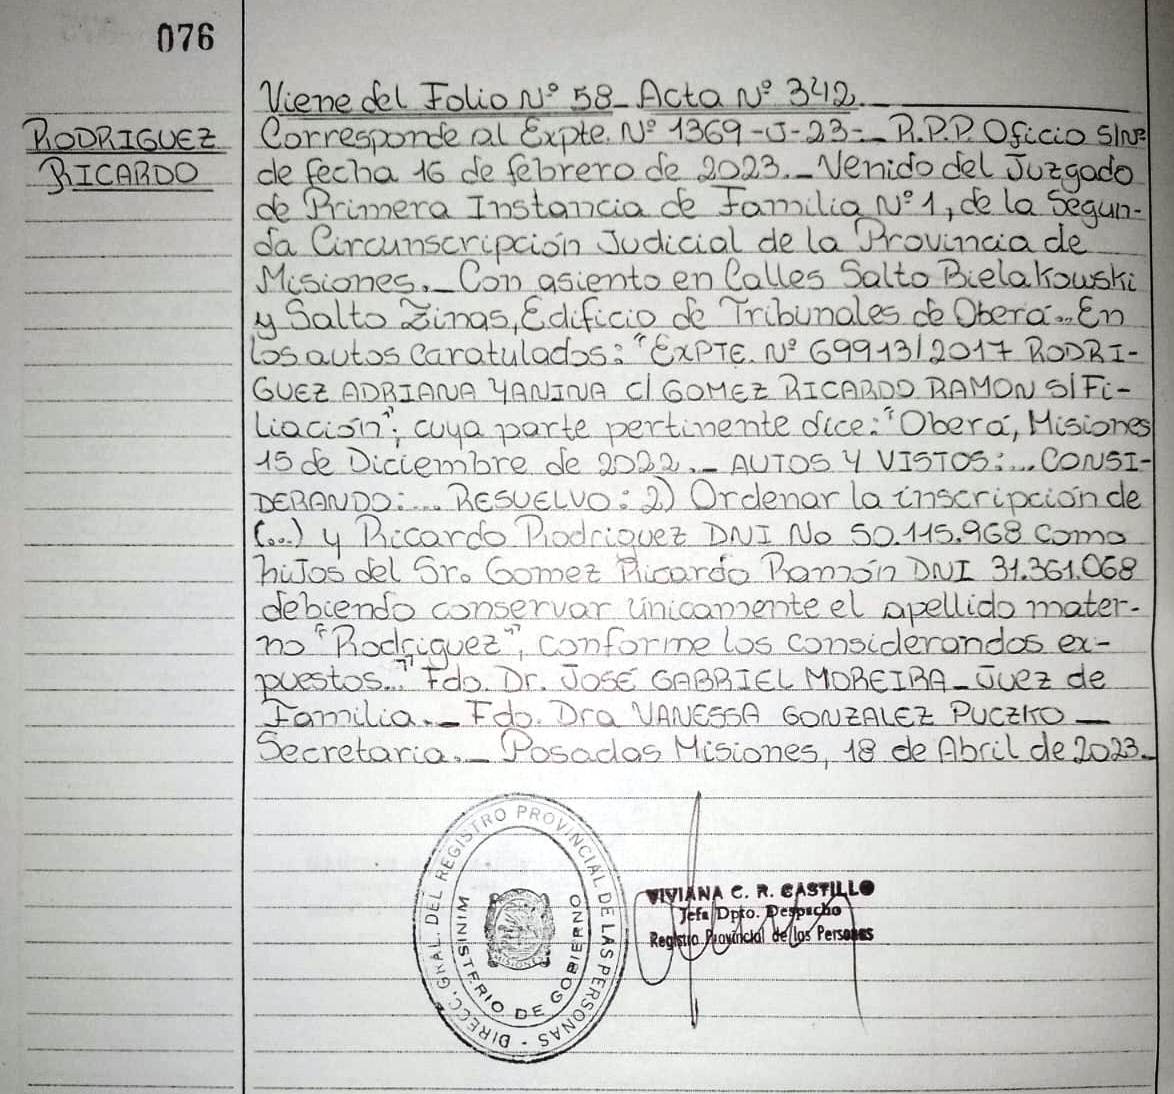 076
RODRIGUEZ
RICARDO
Viene del Folio Nº 58_ Acta Nº 342.
Corresponde al Expte. Nº 1369-J-23-_ R.P.P. Oficio S/Nº
de fecha 16 de febrero de 2023._ Venido del Juzgado
de Primera Instancia de Familia Nº 1, de la Segun-
da Circunscripción Judicial de la Provincia de
Misiones._ Con asiento en Calles Salto Bielakowski
y Salto Zinas, Edificio de Tribunales de Oberá._ En
los autos caratulados: "EXPTE. Nº 69913/2017 RODRI-
GUEZ ADRIANA YANINA C/ GOMEZ RICARDO RAMON S/Fi-
liación"; cuya parte pertinente dice: "Oberá, Misiones
15 de Diciembre de 2022._ AUTOS Y VISTOS:... CONSI-
DERANDO:... RESUELVO: 2) Ordenar la inscripción de
(...) y Ricardo Rodriguez DNI No 50.115.968 como
hijos del Sr. Gomez Ricardo Ramón DNI 31.361.068
debiendo conservar únicamente el apellido mater-
no "Rodriguez", conforme los considerandos ex-
puestos..." Fdo. Dr. JOSÉ GABRIEL MOREIRA_ Juez de
Familia._ Fdo. Dra VANESSA GONZALEZ PUCZKO _
Secretaria._ Posadas Misiones, 18 de Abril de 2023._
DIRECC. GRAL. DEL REGISTRO PROVINCIAL DE LAS PERSONAS -
MINISTERIO DE GOBIERNO
MISIONES
VIVIANA C. R. CASTILLO
Jefa Dpto. Despacho
Registro Provincial de las Personas